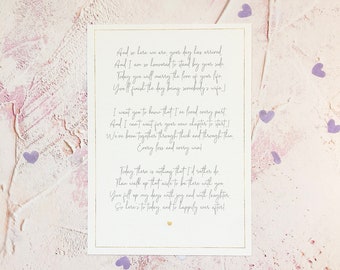 And so here we are, your day has arrived
And I am so honoured to stand by your side.
Today you will marry the love of your life
(You'll finish the day being somebody's wife.)
I want you to know that I've loved every part
And I can't wait for your new chapter to start!
We've been together through thick and through thin
Every loss and every win!
Today there is nothing that I'd rather do
Than walk up that aisle to be there with you.
You fill up my days with joy and with laughter
So here's to today, and to happily ever after!